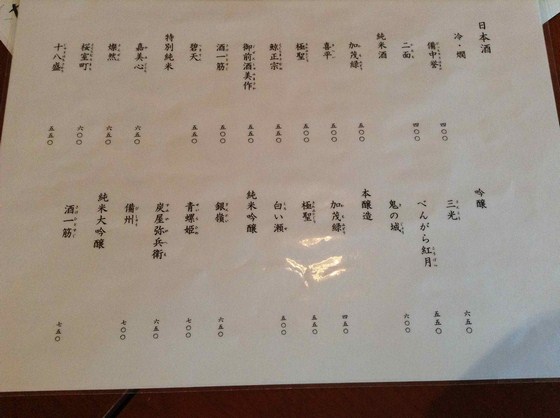 日本酒
冷・燗
備中誉 四〇〇
二面 四〇〇
純米酒
加茂緑 五五〇
喜平
極聖 五五〇
鯨正宗 五五〇
御前酒美作 五五〇
酒一筋 五五〇
碧天 五五〇
特別純米
嘉美心 六五〇
燦然 六五〇
桜室町 六〇〇
十八盛 五五〇
吟醸
三光 六五〇
べんがら紅月 五五〇
鬼の城 六〇〇
本醸造
加茂緑 四五〇
極聖 五五〇
白い瀬 五〇〇
純米吟醸
銀嶺 六五〇
青螺姫 七〇〇
炭屋弥兵衛 六五〇
備州 七〇〇
純米大吟醸
酒一筋 七五〇